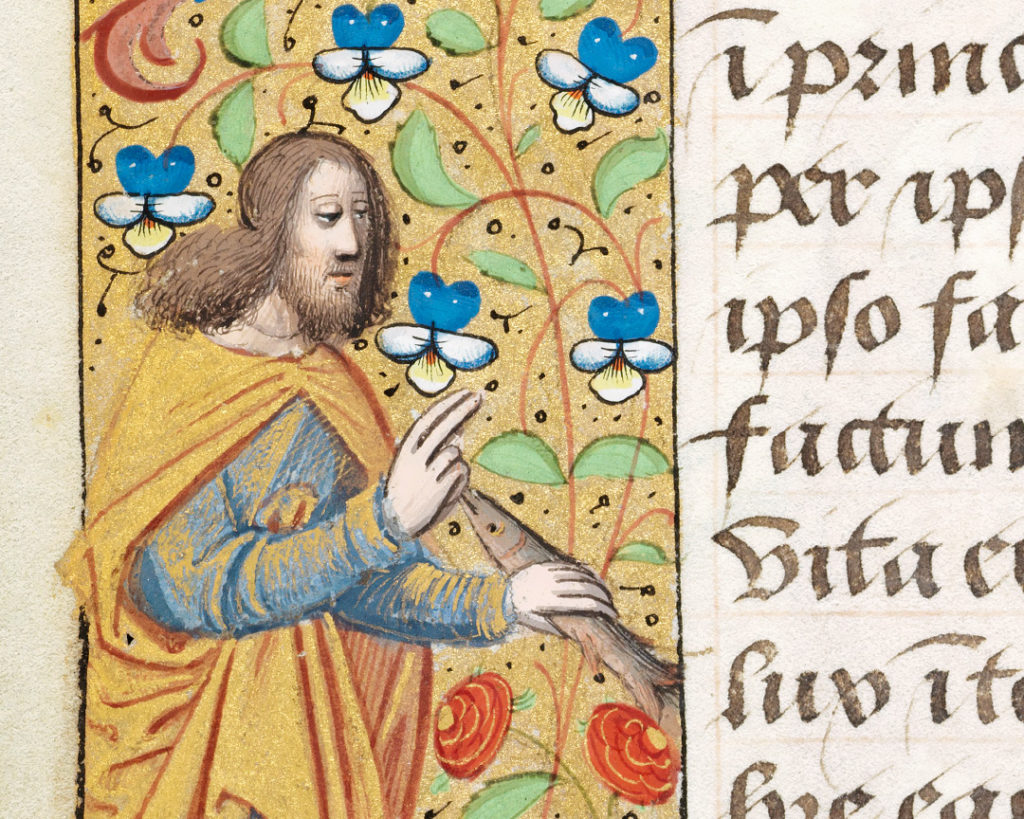 ī prin
per ips
ipso fa
factum
Vita e
lux īte
hoc eg